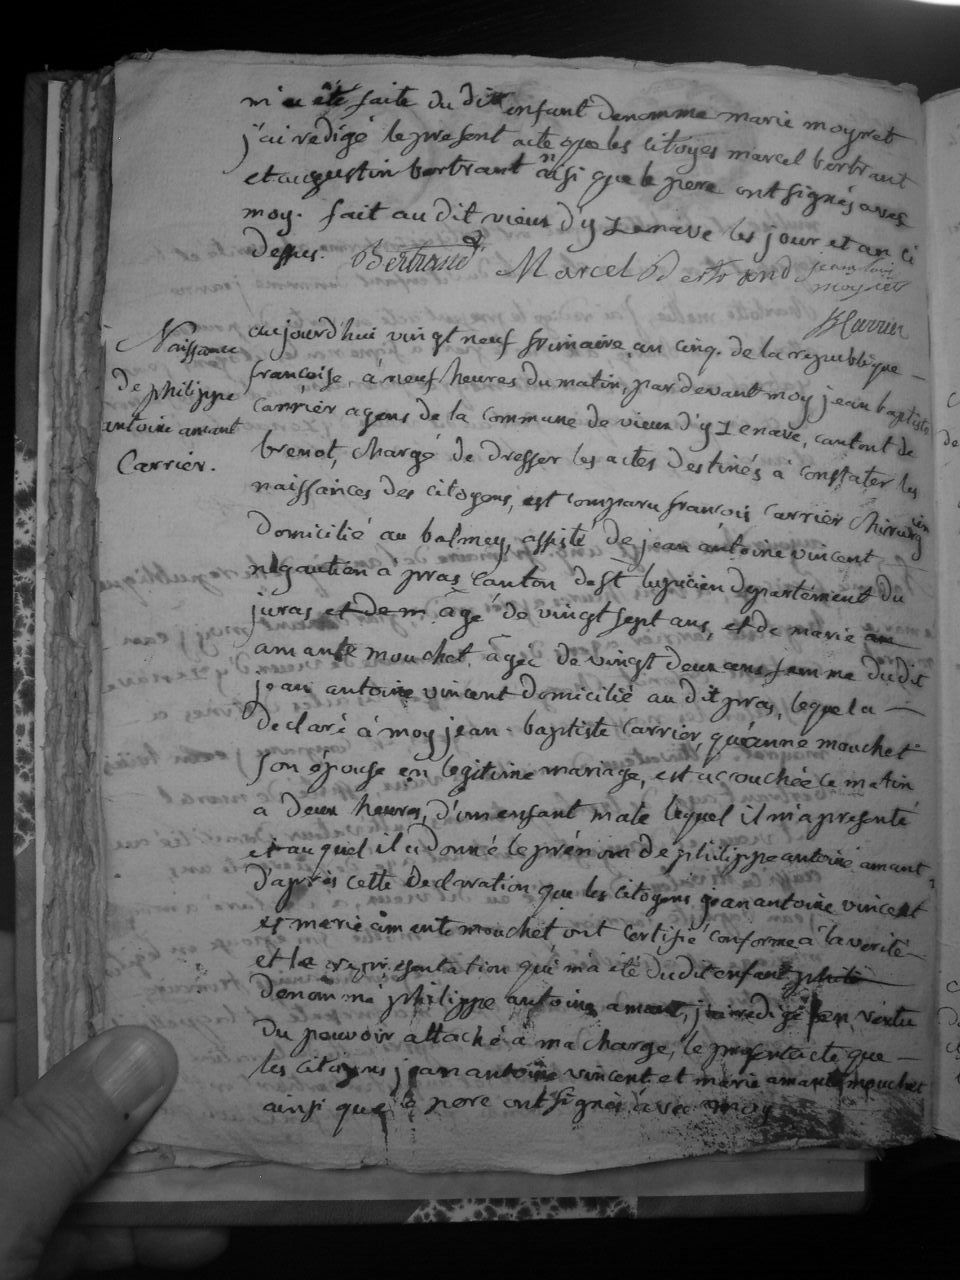 m'a été faite du dit enfant denomme marie moyret
j'ai redigé le present acte que les citoyes marcel bertraut
et augustin bertraut ainsi que le pere ont signés avec
moy. fait au dit vieux d'yzenave les jour et an ci
dessus. Bertrand Marcel Bertrand jean loui
moyret
JBCarrier
Naissance
de philippe
antoine amant
Carrier.
aujourd'hui vingt neuf frimaire, an cinq. de la republique
françoise, à neuf heures du matin, par devant moy jean baptiste
carrier agens de la commune de vieux d'yzenave, canton de
brenot, chargé de dresser les actes destinés a constater les
naissances des citoyens, est comparu françois Carrier chirurgien
domicilié au balmey, assisté de jean antoine vincent
négautien a pras canton de St lupicien departement du
juras et de m agé de vingt sept ans, et de marie am
amante mouchet agée de vingt deux ans femme du dit
jean antoine vincent domicilié au dit pras, lequel a
declaré à moy jean-baptiste Carrier qu'anne mouchet
son épouse en legitime mariage, est acouchée ce matin
a deux heures, d'un enfant male lequel il m'a presenté
et auquel il a donné le prénom de philippe antoine amant,
d'après cette declaration que les citoyens jean antoine vincent
et marie amante mouchet ont certifié conforme a la verité
et la representation qui m'a été du dit enfant phili
denommé philippe antoine amant, j'ai redigé en vertu
du pouvoir attaché a ma charge, le present acte que
les citoyens jean antoine vincent et marie amante mouchet
ainsi que le pere ont signés avec moy